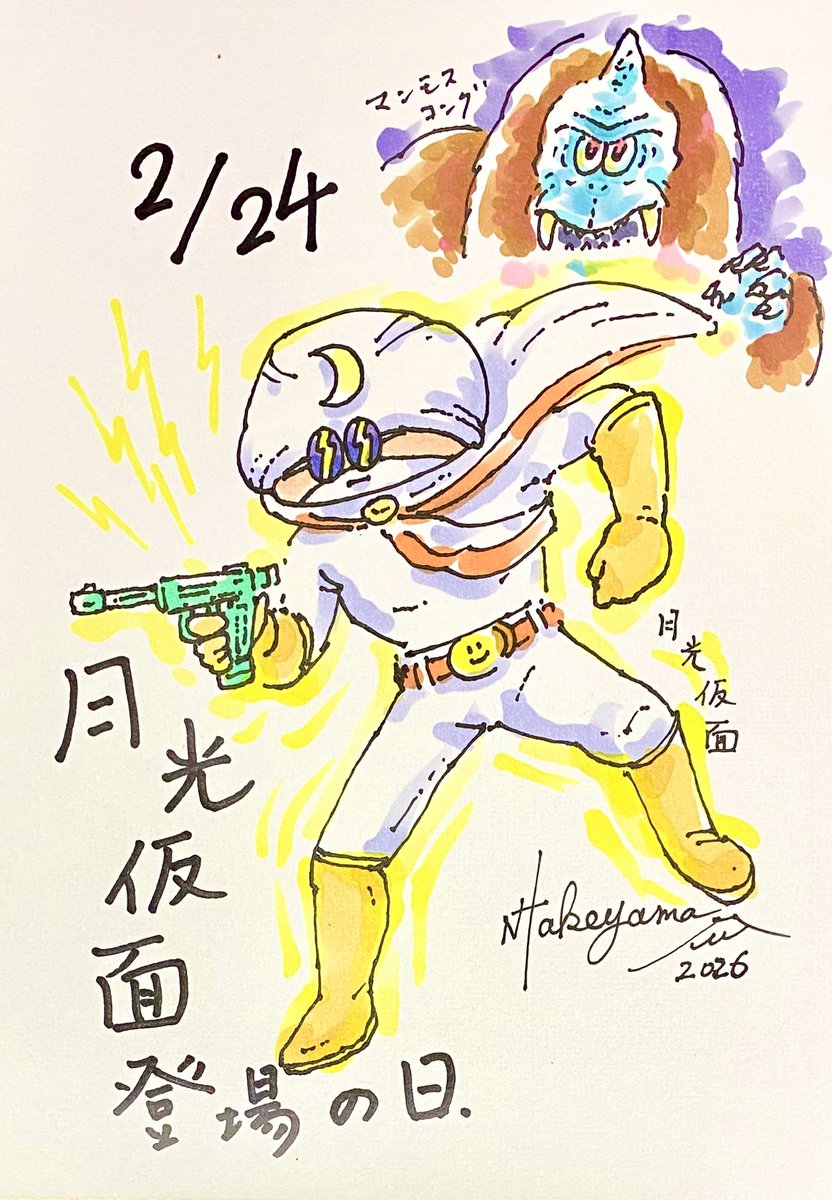 マンモス
コング
2/24
月光仮面
登場の日.
月光仮面
NTakeyama
2026